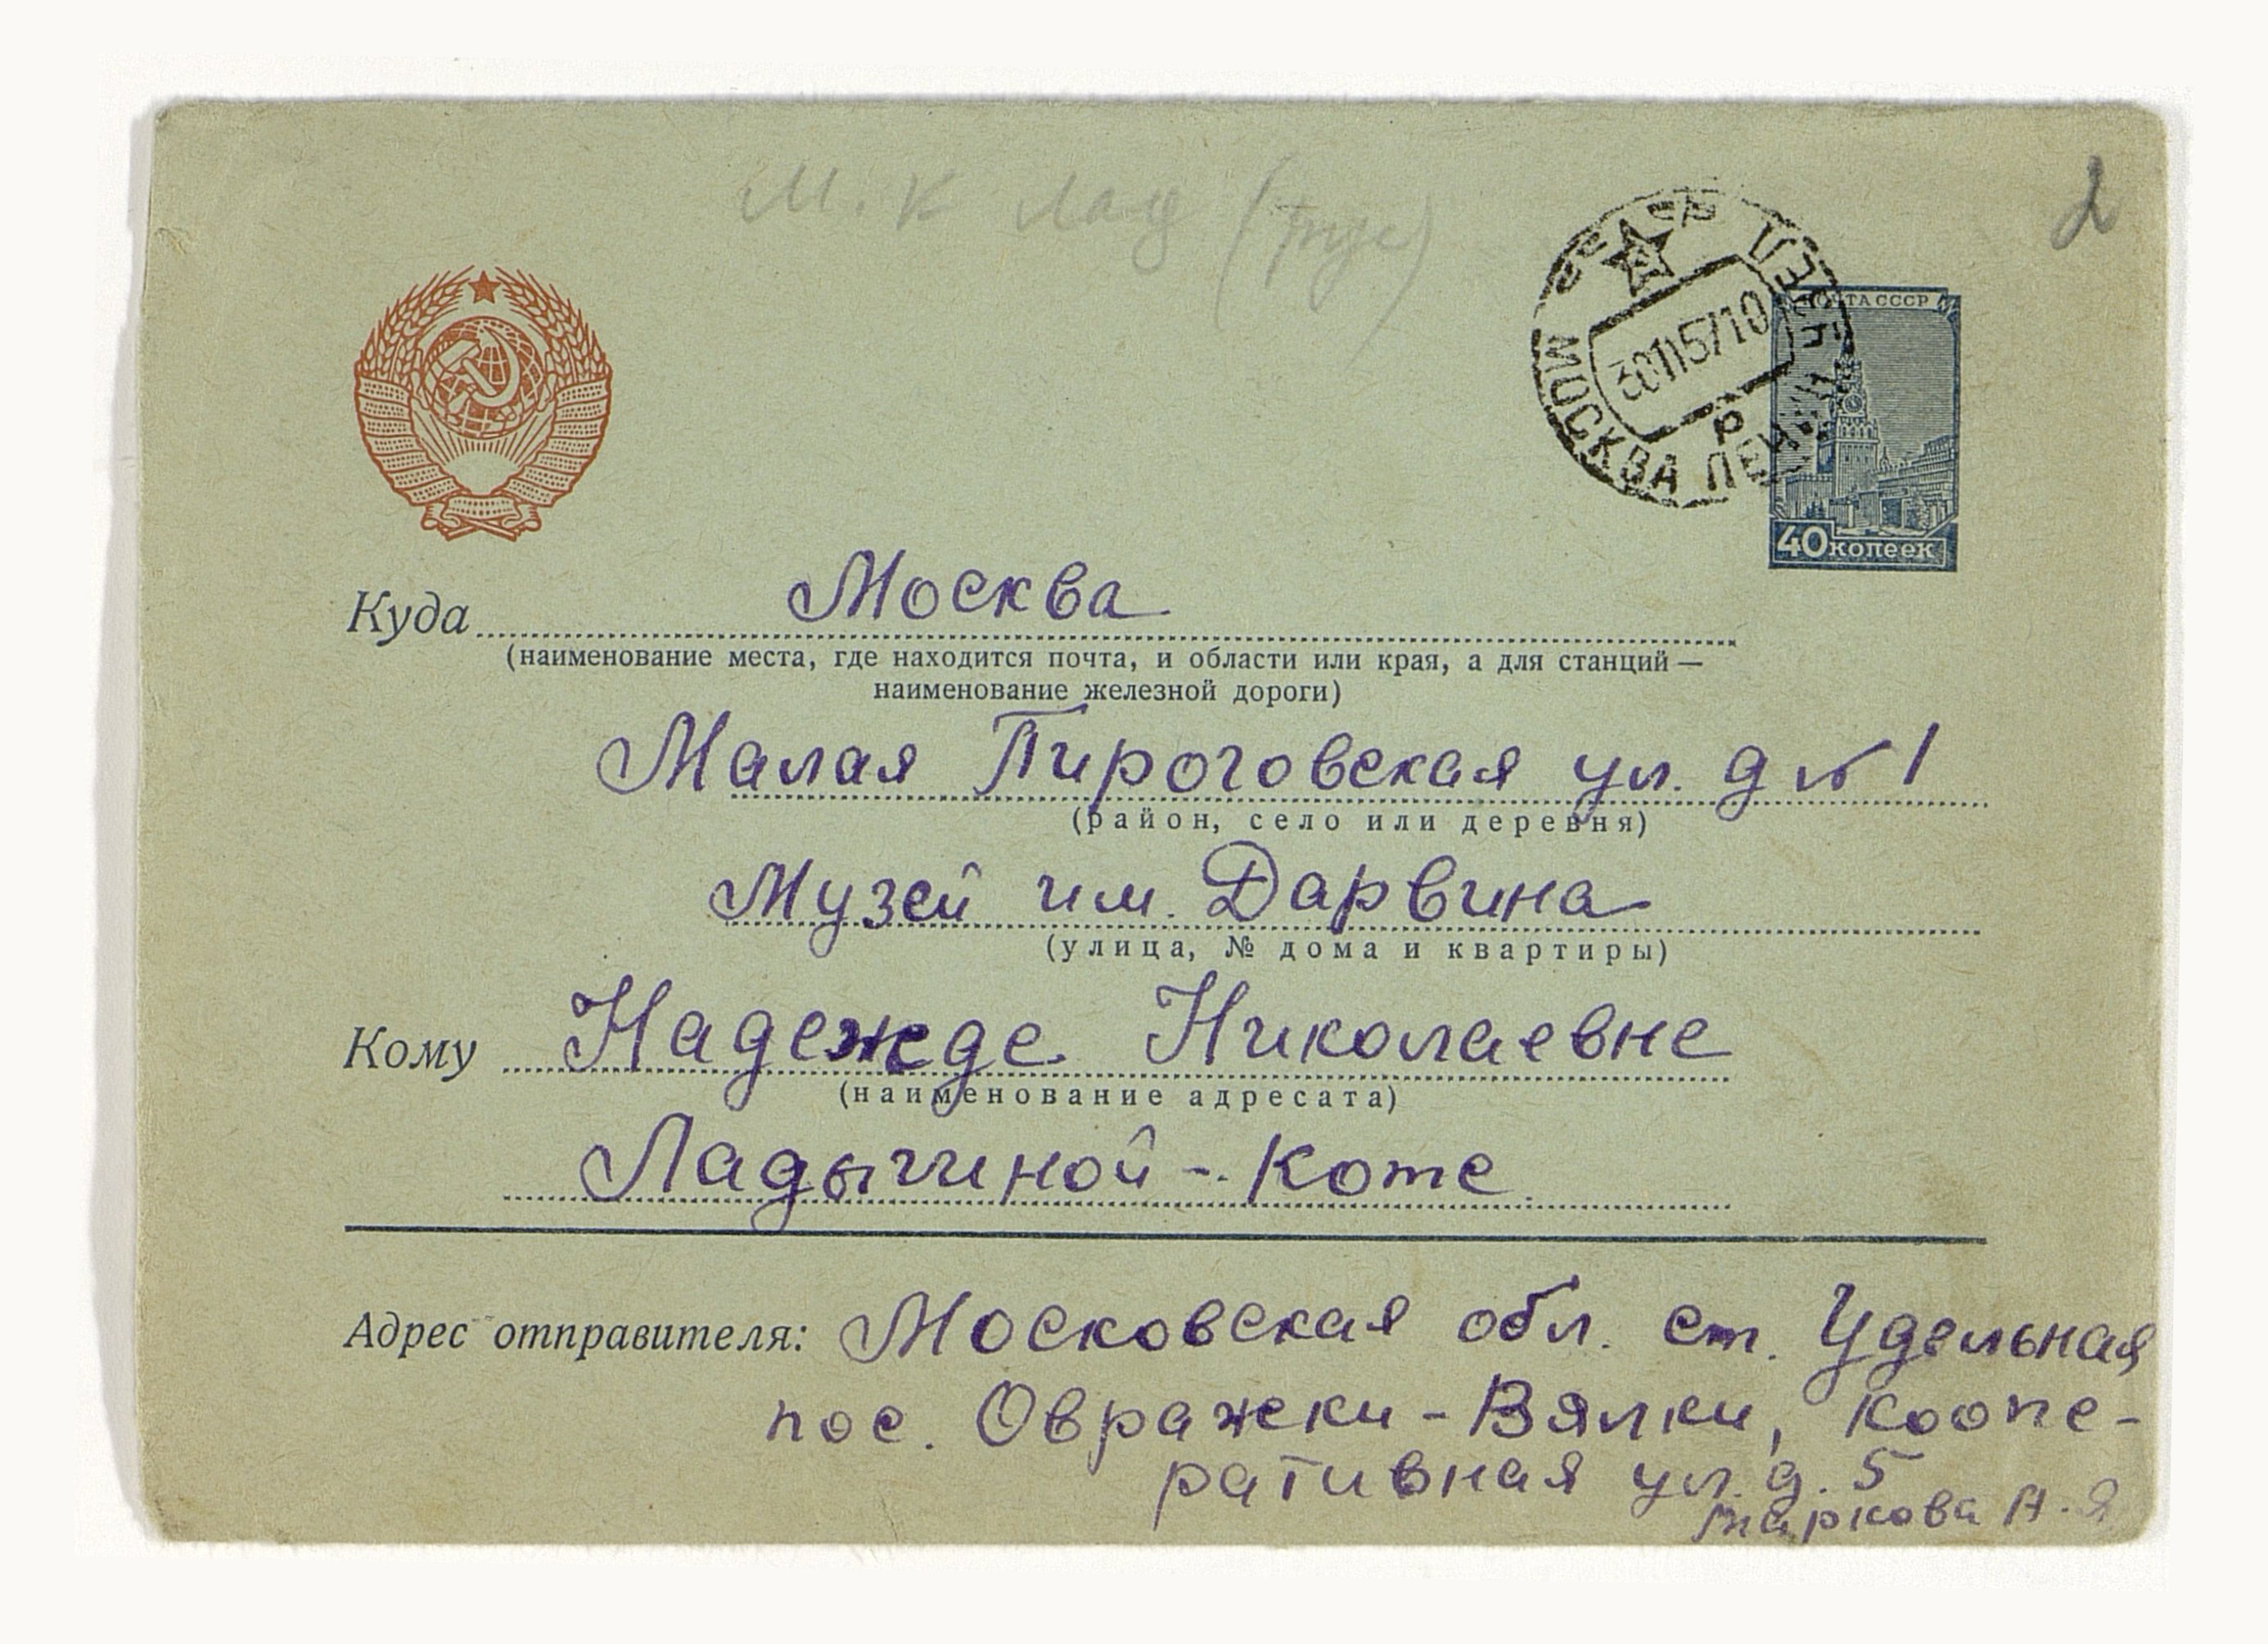 М. К Лад (
2
ПОЧТА СССР
МОСКВА
40 копеек
Куда Москва
(наименование места, где находится почта, и области или края, а для станций —
наименование железной дороги)
Малая Пироговская ул. д № 1
(район, село или деревня)
Музей им. Дарвина
(улица, № дома и квартиры)
Кому Надежде Николаевне
(наименование адресата)
Ладычиной - Коте.
Адрес отправителя: Московская обл. ст. Удельная
пос. Овражки - Вялки, коопе-
ративная ул. д. 5
Маркова А. Я